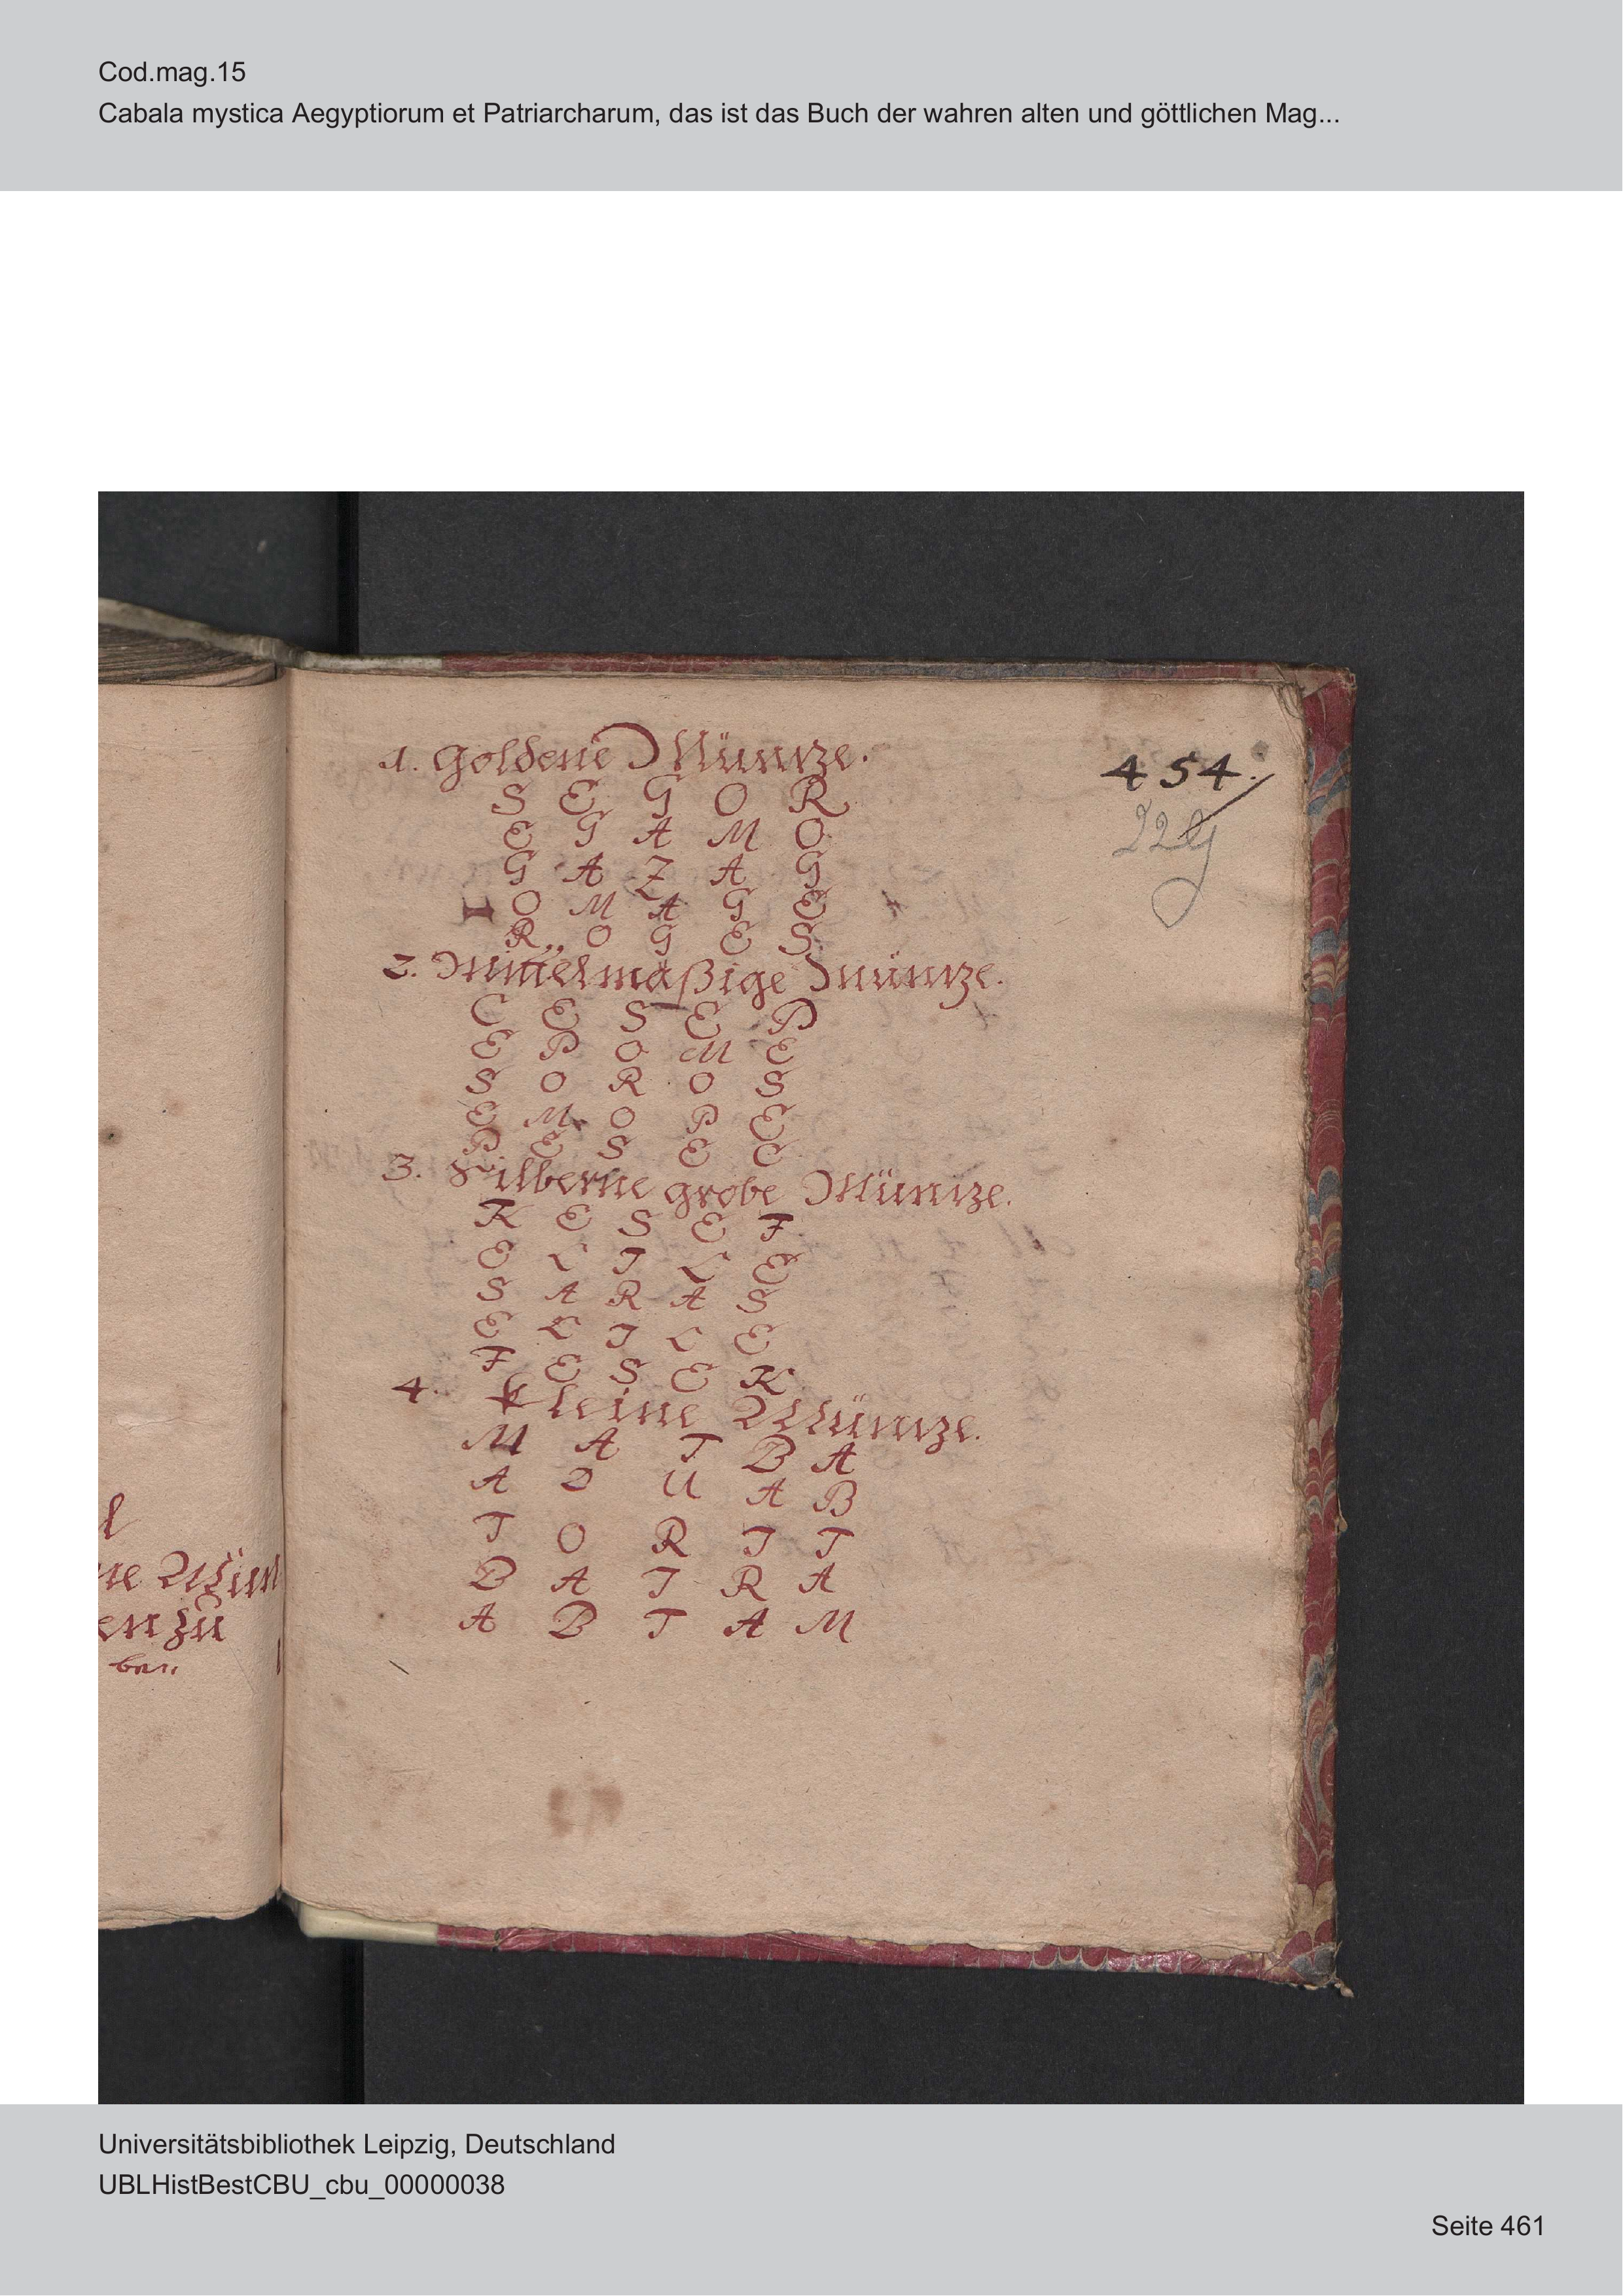 Cod.mag.15
Cabala mystica Aegyptiorum et Patriarcharum, das ist das Buch der wahren alten und göttlichen Mag...
1. Goldene Müntze.
S E G O R
E G A M O
G A Z A G
I O M A G E
R O G E S
454.
229
2. Mittelmäßige Müntze.
C E S E P
E P O M E
S O R O S
E M O P E
P E S E C
3. Silberne grobe Müntze.
K E S E F
E L I L E
S A R A S
E L I L E
F E S E K
4. kleine Müntze.
M A T B A
A O U A B
T O R I T
B A I R A
A B T A M
l
ne Mün
en zu
ben
Universitätsbibliothek Leipzig, Deutschland
UBLHistBestCBU_cbu_00000038
Seite 461